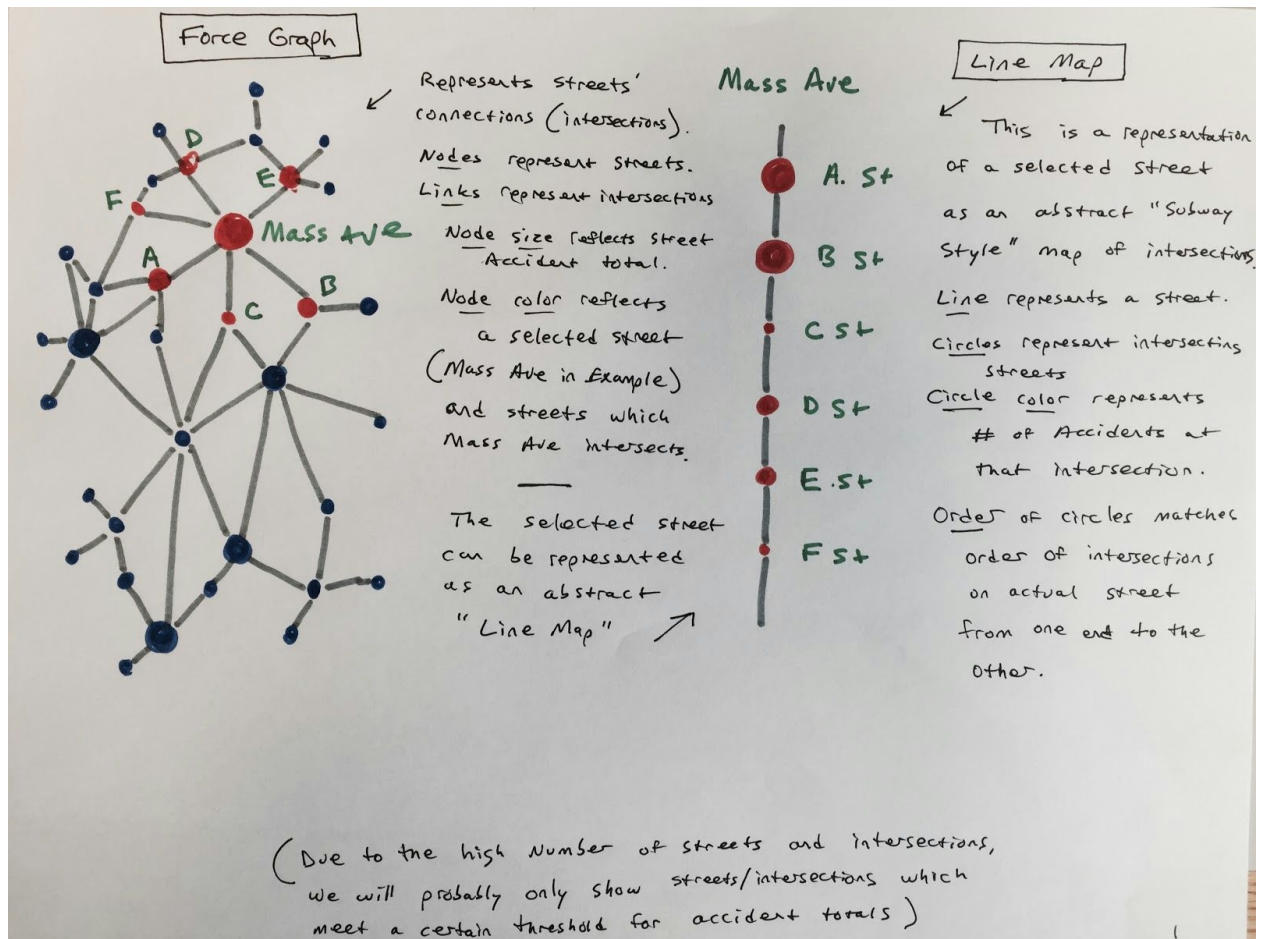 Force Graph
Represents streets'
connections (intersections).
Nodes represent streets.
Links represent intersections
Node size reflects street
Accident total.
Node color reflects
a selected street
(Mass Ave in Example)
and streets which
Mass Ave intersects.
The selected street
can be represented
as an abstract
"Line Map"
D
E
F
Mass Ave
A
B
C
Mass Ave
A. St
B St
C St
D St
E. St
F St
Line Map
This is a representation
of a selected street
as an abstract "Subway
Style" map of intersections.
Line represents a street.
Circles represent intersecting
streets
Circle color represents
# of Accidents at
that intersection.
Order of circles matches
order of intersections
on actual street
from one end to the
other.
(Due to the high number of streets and intersections,
we will probably only show streets/intersections which
meet a certain threshold for accident totals)